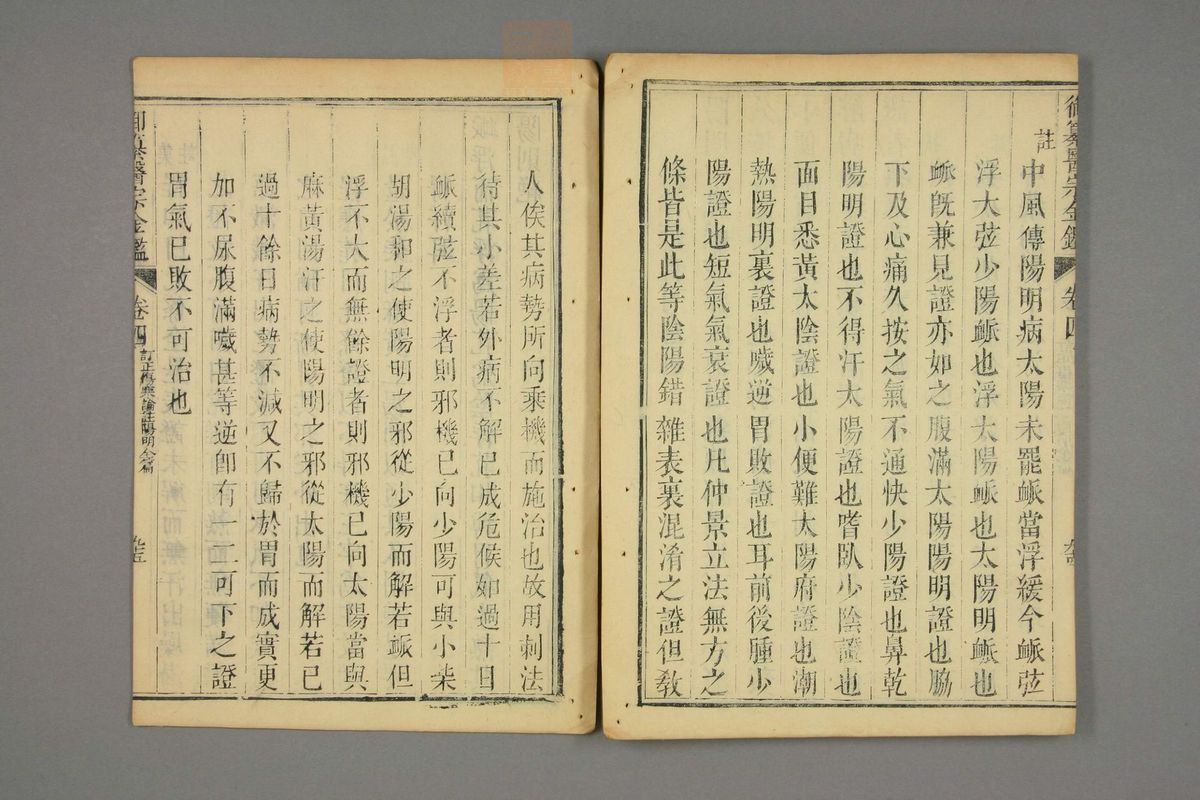 御纂醫宗金鑑
卷四
註
中風傳陽明病太陽未罷脈當浮緩今脈弦
浮大弦少陽脈也浮太陽脈也大陽明脈也
脈旣兼見證亦如之腹滿太陽陽明證也脇
下及心痛久按之氣不通快少陽證也鼻乾
陽明證也不得汗太陽證也嗜臥少陰證也
面目悉黃太陰證也小便難太陽府證也潮
熱陽明裏證也噦逆胃敗證也耳前後腫少
陽證也短氣氣衰證也凡仲景立法無方之
條皆是此等陰陽錯雜表裏混淆之證但敎
人俟其病勢所向乘機而施治也故用刺法
待其小差若外病不解已成危候如過十日
脈續弦不浮者則邪機已向少陽可與小柴
胡湯和之使陽明之邪從少陽而解若脈但
浮不大而無餘證者則邪機已向太陽當與
麻黃湯汗之使陽明之邪從太陽而解若已
過十餘日病勢不減又不歸於胃而成實更
加不尿腹滿噦甚等逆卽有一二可下之證
胃氣已敗不可治也
御纂醫宗金鑑
卷四
訂正傷寒論註陽明全篇